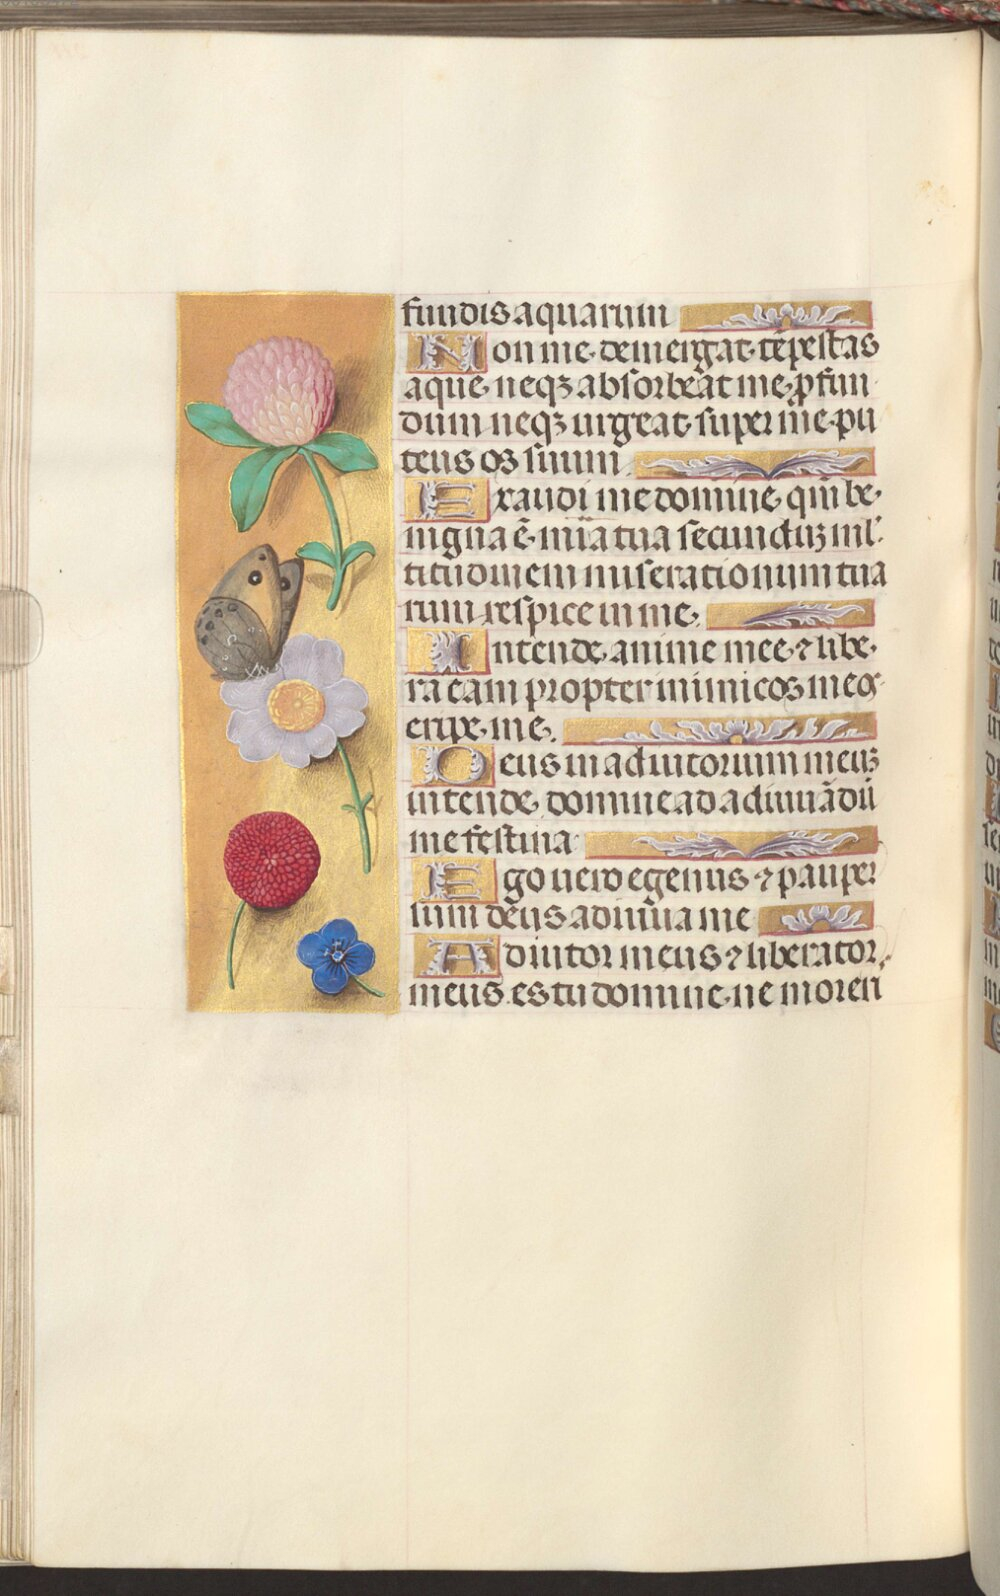 fundis aquarum
Non me demergat tēpestas
aque neqꝫ absorbeat me ꝓfun
dum neqꝫ urgeat super me pu
teus os suum
Exaudi me domine qm̄ be
nigna ē mīa tua secunduꝫ ml̄
titudinem miserationum tua
rum respice in me
Intende anime mee ⁊ libe
ra eam propter inimicos meos
eripe me.
Deus in adiutorium meuꝫ
intende domine ad adiuuādū
me festina
Ego uero egenus ⁊ pauper
sum deus adiuua me
Adiutor meus ⁊ liberator
meus es tu domine ne moreri